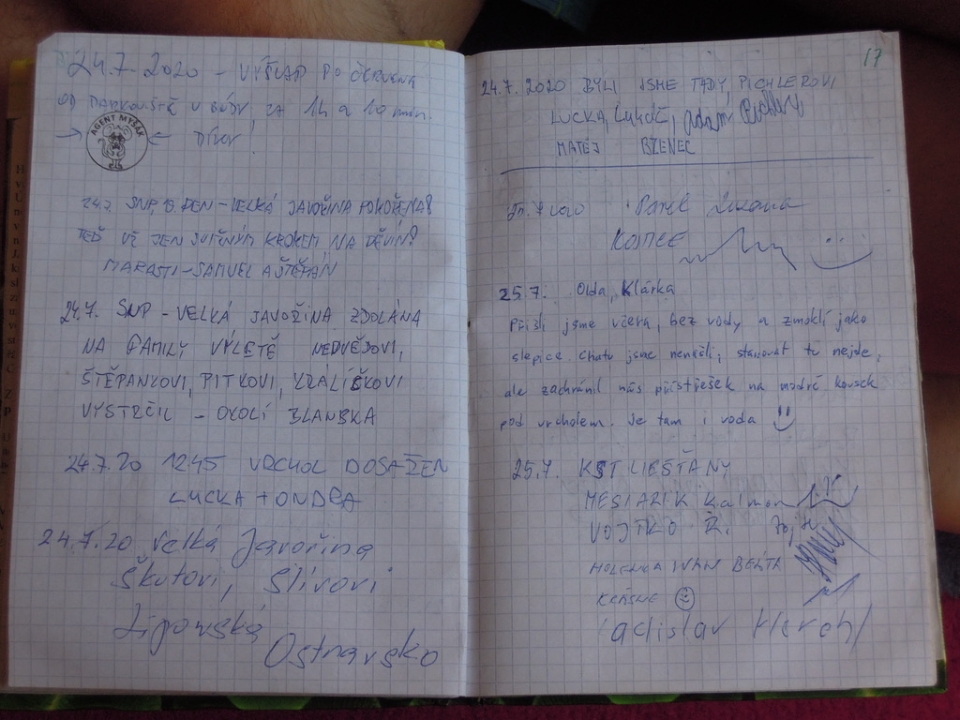 24.7.2020 - VÝŠLAP PO ČERVENÉ
OD PARKOVIŠTĚ U BOUDY ZA 1H a 10 min.
AGENT MYŠÁK
24.7. SNP, DEN - VELKÁ JAVOŘINA POKOŘENA!
TEĎ UŽ JEN SVIŽNÝM KROKEM NA DĚVÍN!
SAMUEL A ŠTĚPÁN
24.7. SNP - VELKÁ JAVOŘINA ZDOLÁNA
NA FAMILY VÝLETĚ NEDVĚDOVI,
ŠTĚPÁNKOVI, PITKOVI, KRÁLÍČKOVI
VYSTRČIL - OKOLÍ BLANSKA
24.7.20 12:45 VRCHOL DOSAŽEN
LUCKA + ONDRA
24.7.20 Velká Javořina
Škutovi, Slívovi
Lipowská
Ostravsko
17
24.7.2020 BYLI JSME TADY PICHLEROVI
LUCKA, Lukáš, Adam
MATĚJ BZENEC
Pavel
25.7. Olda, Klárka
Přišli jsme včera, bez vody a zmoklí jako
slepice. Chatu jsme nenašli, stanovat tu nejde,
ale zachránil nás přístřešek na modré kousek
pod vrcholem. Je tam i voda
25.7 KST PIEŠŤANY
Kálmán
VOJTKO R.
IVAN BEÁTA
KRÁSNE
Ladislav